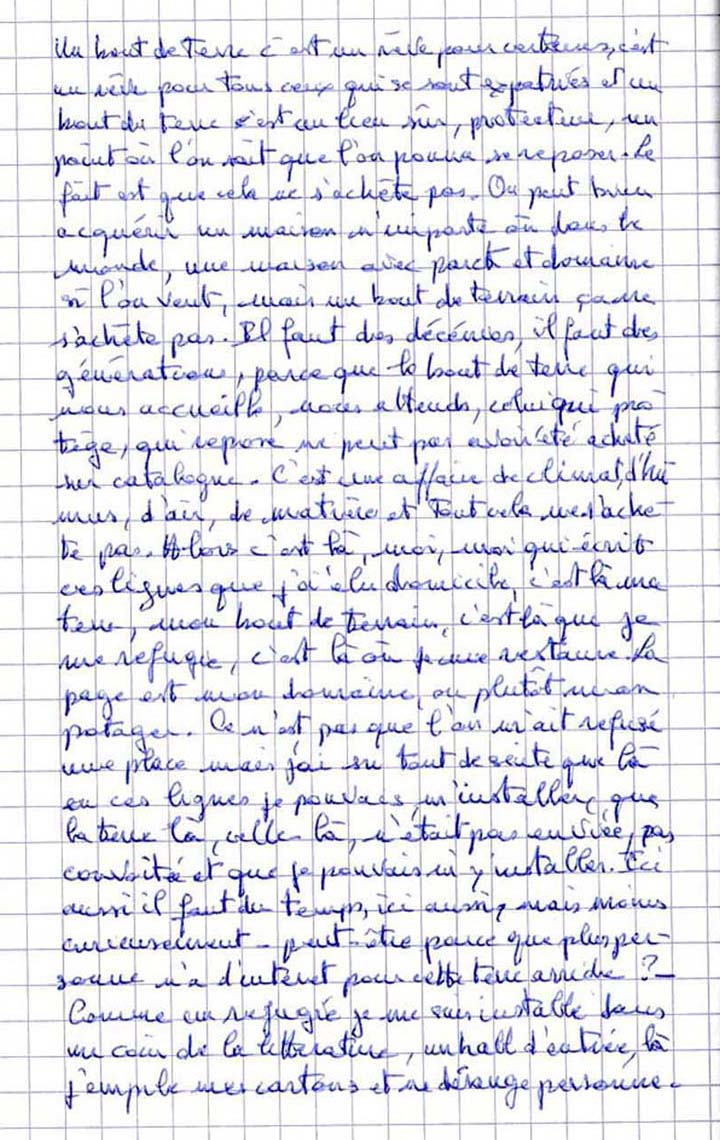 Un bout de terre c'est un rêve pour certains, c'est
un rêve pour tous ceux qui se sont expatriés et un
bout de terre c'est un lieu sûr, protecteur, un
point où l'on sait que l'on pourra se reposer. Le
fait est que cela ne s'achète pas. On peut bien
acquérir un maison n'importe où dans le
monde, une maison avec parck et domaine
si l'on veut, mais un bout de terrain ça ne
s'achète pas. Il faut des décénies, il faut des
générations, parce que le bout de terre qui
nous accueille, nous attends, celui qui pro
tège, qui repose ne peut pas avoir été acheté
sur catalogue. C'est une affaire de climat, d'hu
mus, d'air, de matière et tout cela ne s'achè
te pas. Alors c'est là, moi, moi qui écrit
ces lignes que j'ai élu domicile, c'est là ma
terre, mon bout de terrain, c'est là que je
me refugie, c'est là où je me restaure. La
page est mon domaine, ou plutôt mon
potager. Ce n'est pas que l'on m'ait refusé
une place mais j'ai su tout de suite que là
en ces lignes je pouvais m'installer, que
la terre là, celle là, n'était pas enviée, pas
convoitée et que je pouvais m'y installer. Ici
aussi il faut du temps, ici aussi, mais moins
curieusement - peut-être parce que plus per-
sonne n'a d'intéret pour cette terre arride ? -
Comme un refugié je me suis installé dans
un coin de la littérature, un hall d'entrée, là
j'empile mes cartons et ne dérange personne.